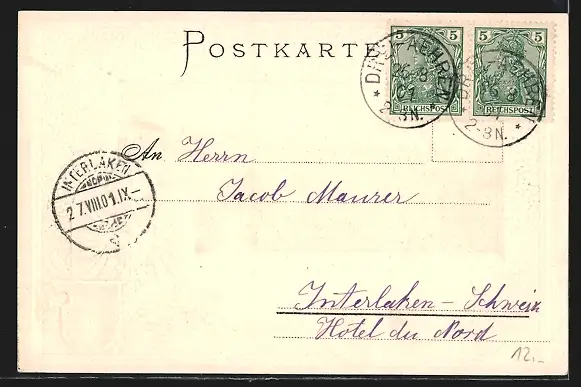 POSTKARTE
5 5 5 5
REICHSPOST REICHSPOST
2-3N. 2-3N.
INTERLAKEN
27.VIII.01.IX-
An Herrn
Jacob Maurer
Interlaken – Schweiz
Hotel du Nord
12.-